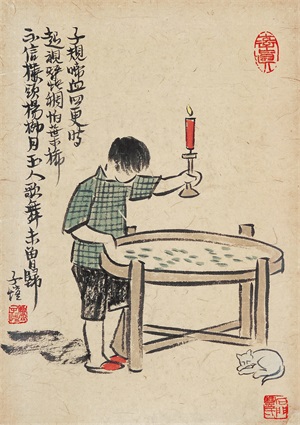 子規啼血四更時
起視蠶稠怕葉稀
不信樓頭楊柳月玉人歌舞未曾歸
子愷